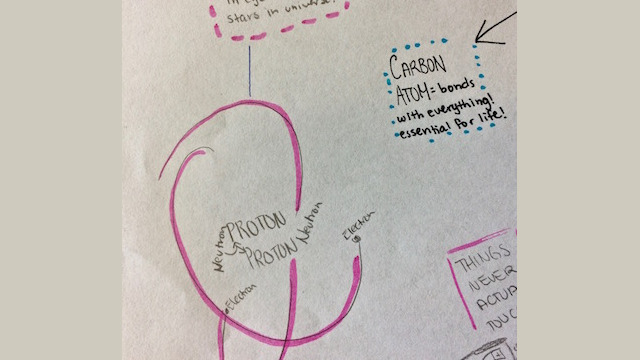 stars in universe!
CARBON
ATOM = bonds
with everything!
essential for life!
Neutron
PROTON
PROTON
Neutron
Electron
Electron
THINGS
NEVER
ACTUA
TOUC